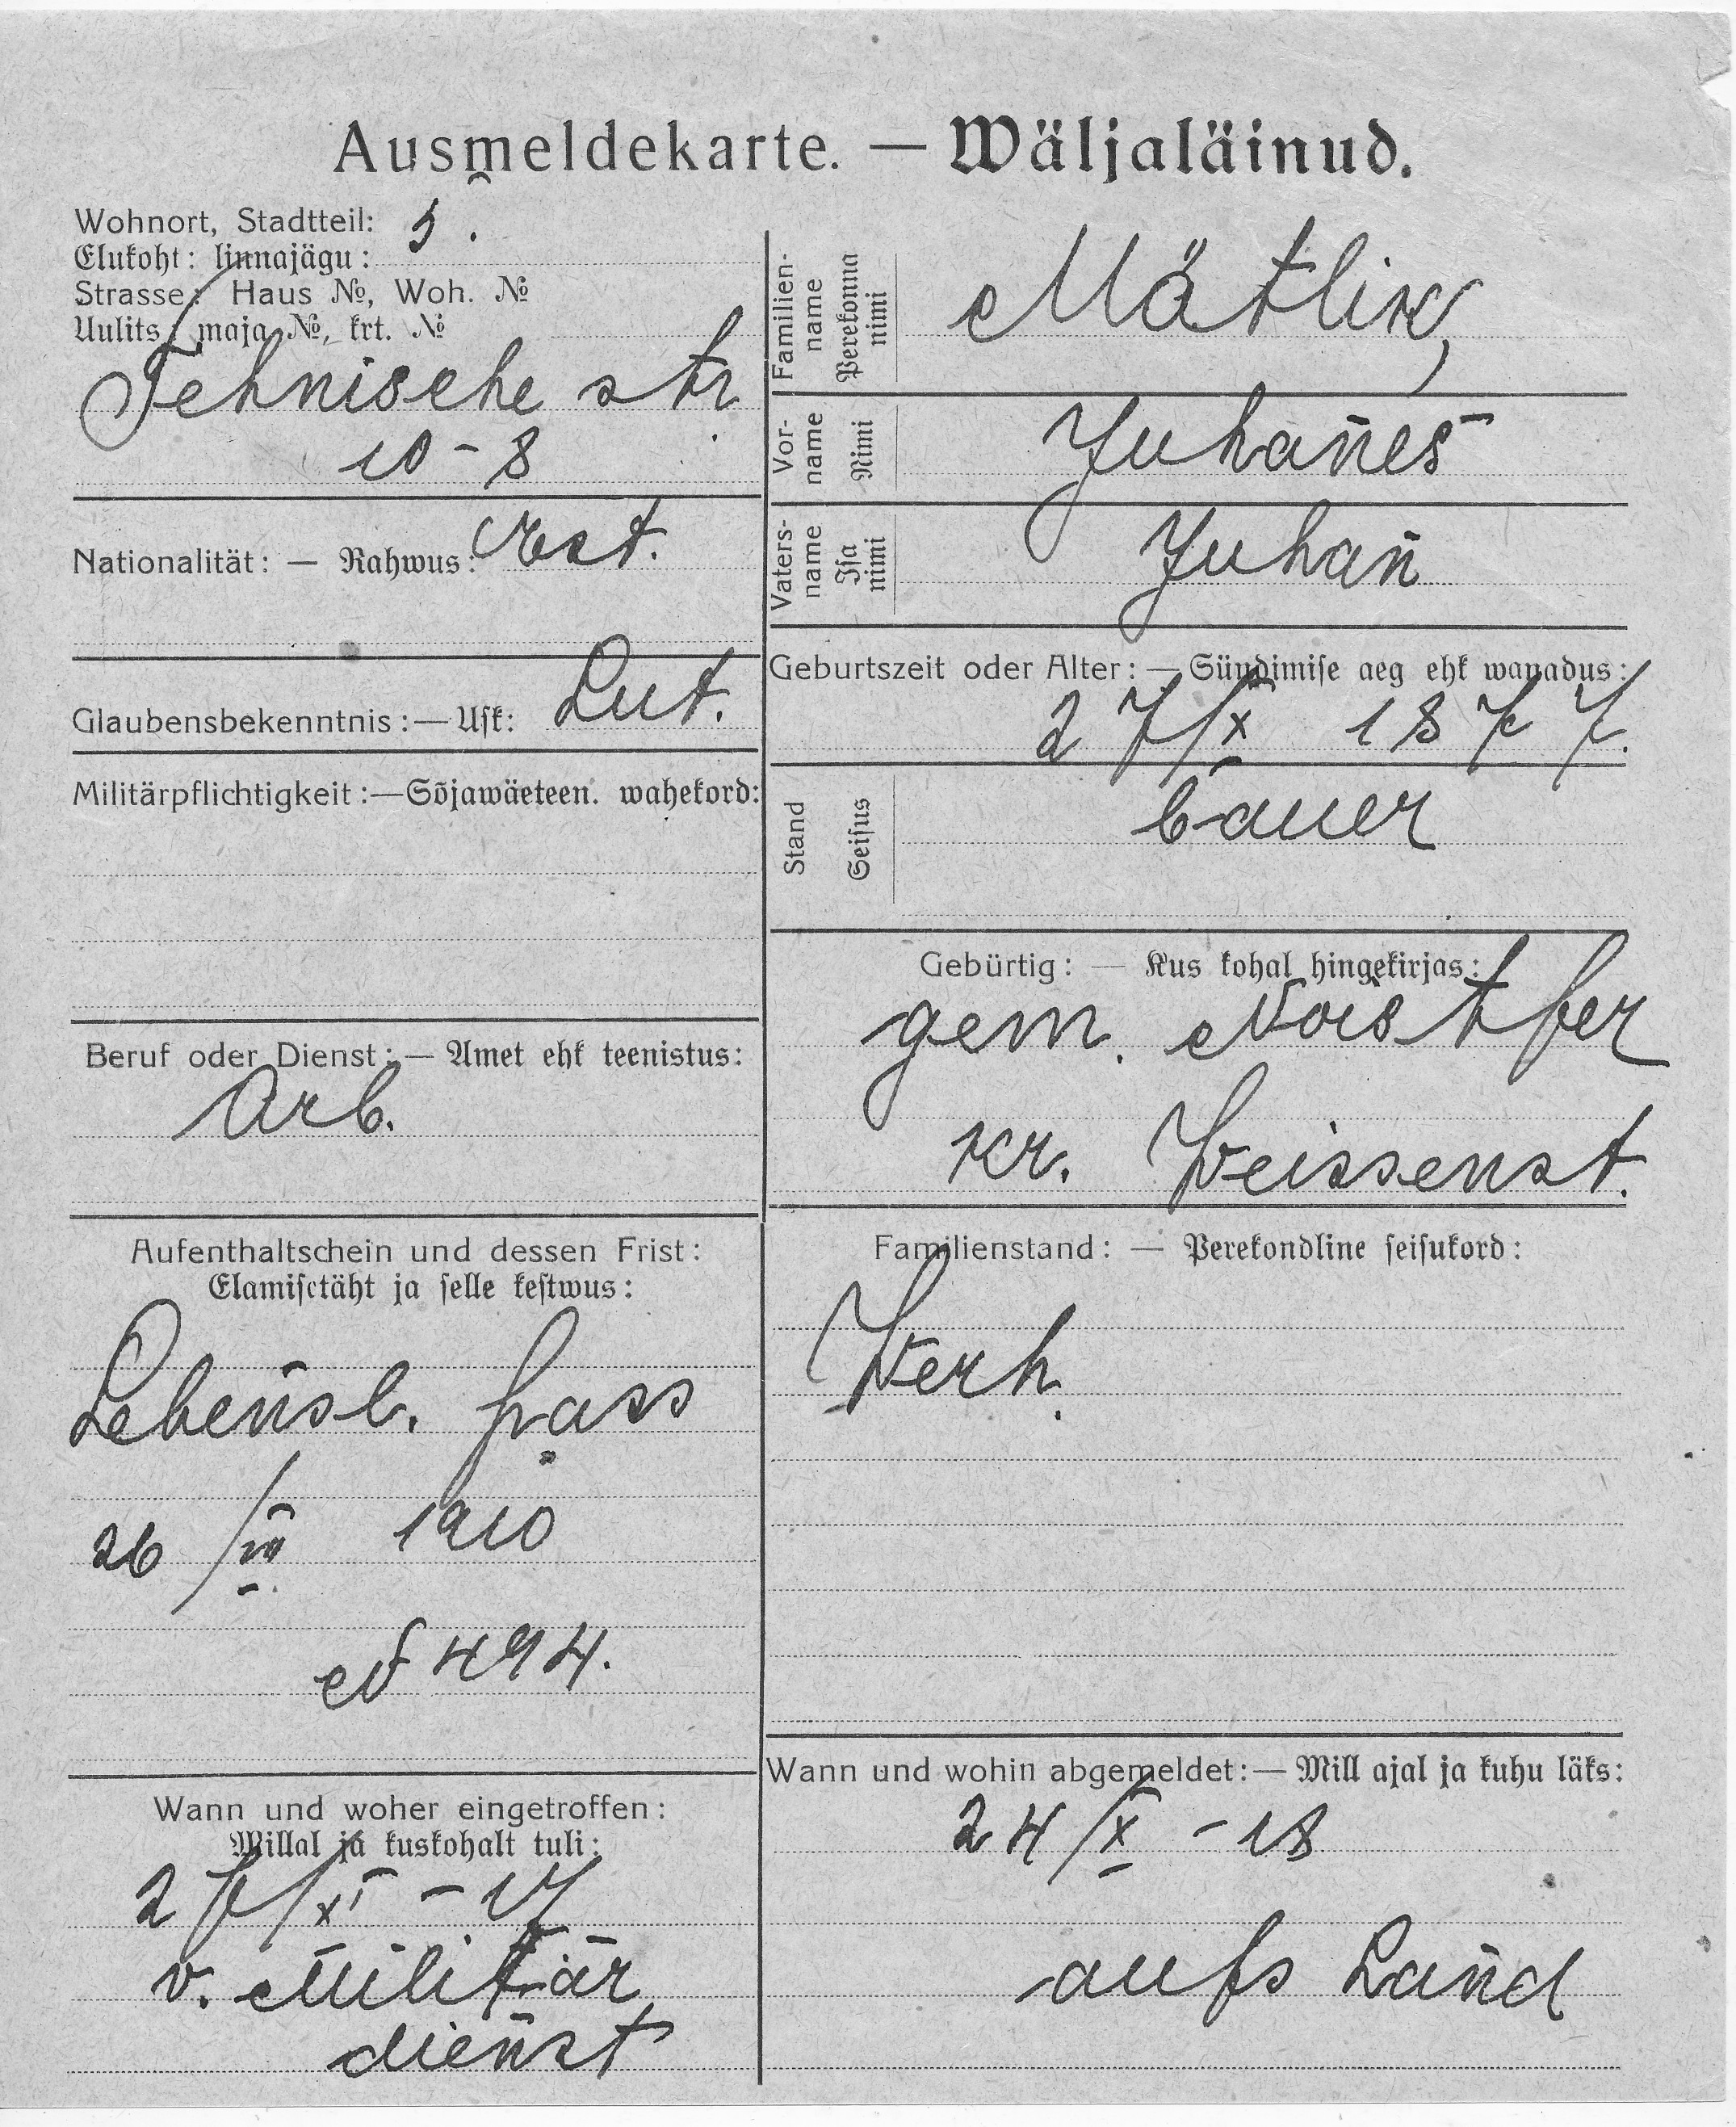 Ausmeldekarte. — Wäljaläinud.
Wohnort, Stadtteil: 3.
Elukoht: linnajägu:
Strasse: Haus №, Woh. №
Uulits, maja №, krt. №
Tehnische str
10 - 8
Nationalität: — Rahwus: Est.
Glaubensbekenntnis: — Usk: Lut.
Militärpflichtigkeit: — Sõjawäeteen. wahekord:
Beruf oder Dienst: — Amet ehk teenistus:
Arb.
Aufenthaltschein und dessen Frist:
Elamisetäht ja selle kestwus:
Lebensl. pass
26/VIII 1910
N 494.
Wann und woher eingetroffen:
Millal ja kuskohalt tuli:
27/XI - 17
v. Militär
dienst
Familien-
name
Perekonna
nimi
Mätlik,
Vor-
name
Nimi
Juhanes
Vaters-
name
Isa
nimi
Juhan
Geburtszeit oder Alter: — Sündimise aeg ehk wanadus:
27/X 1877.
Stand
Seisus
bauer
Gebürtig: — Kus kohal hingekirjas:
gem. Noistfer
Kr. Weissenst.
Familienstand: — Perekondline seisukord:
Verh.
Wann und wohin abgemeldet: — Mill ajal ja kuhu läks:
24/X - 18
aufs Land